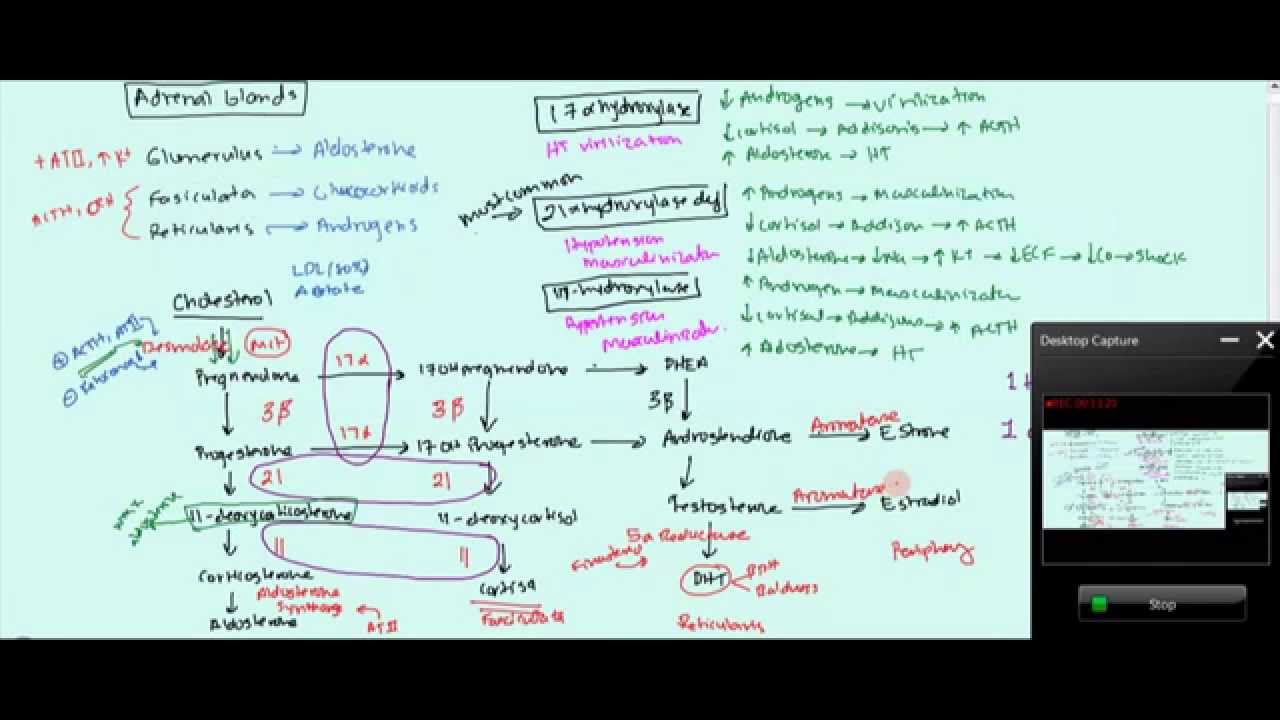 Adrenal Glands
+ ATII, ↑ K+ Glumerulus → Aldosterone
ACTH, CRH Fasiculata → Glucocorticoids
Reticularis → Androgens
LDL (80%)
Acetate
Cholesterol
⊕ ACTH, ATII
Desmolase MIT
Pregnenolone 17α 17OH pregnenolone → DHEA
3β 3β 3β
Progesterone 17α 17 OH Progesterone → Androstendione Aromatase Estrone
21 21
11-deoxycorticosterone 11-deoxycortisol Testosterone Aromatase Estradiol
11 11 5α Reductase Periphery
Corticosterone Cortisol DHT BPH
Baldness
Aldosterone Synthase
Aldosterone ATII Fasciculata Reticularis
17αhydroxylase
HT virilization
↓ Androgens → virilization
↓ cortisol → Addisons → ↑ ACTH
↑ Aldosterone → HT
most common → 21αhydroxylase def
Hypotension
Masculinization
↑ Androgens → Masculinization
↓ Cortisol → Addison → ↑ ACTH
↓ Aldosterone → ↓ Na → ↑ K+ → ↓ ECF → ↓ CO → SHOCK
11β-hydroxylase
Hypertension
↑ Androgen → Masculinization
↓ Cortisol → Addisons → ↑ ACTH
↑ Aldosterone → HT
Desktop Capture
Stop